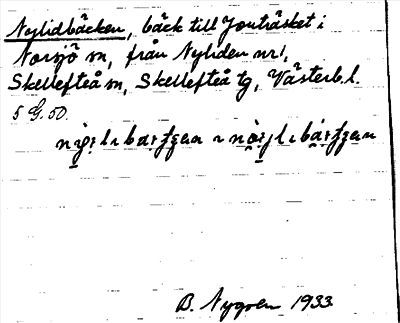 Nylidbäcken, bäck till Jonträsket i
Norsjö sn, från Nyliden nr 1,
Skellefteå sn, Skellefteå tg, Västerb. l.
5 G. 50.
B. Nygren 1933.